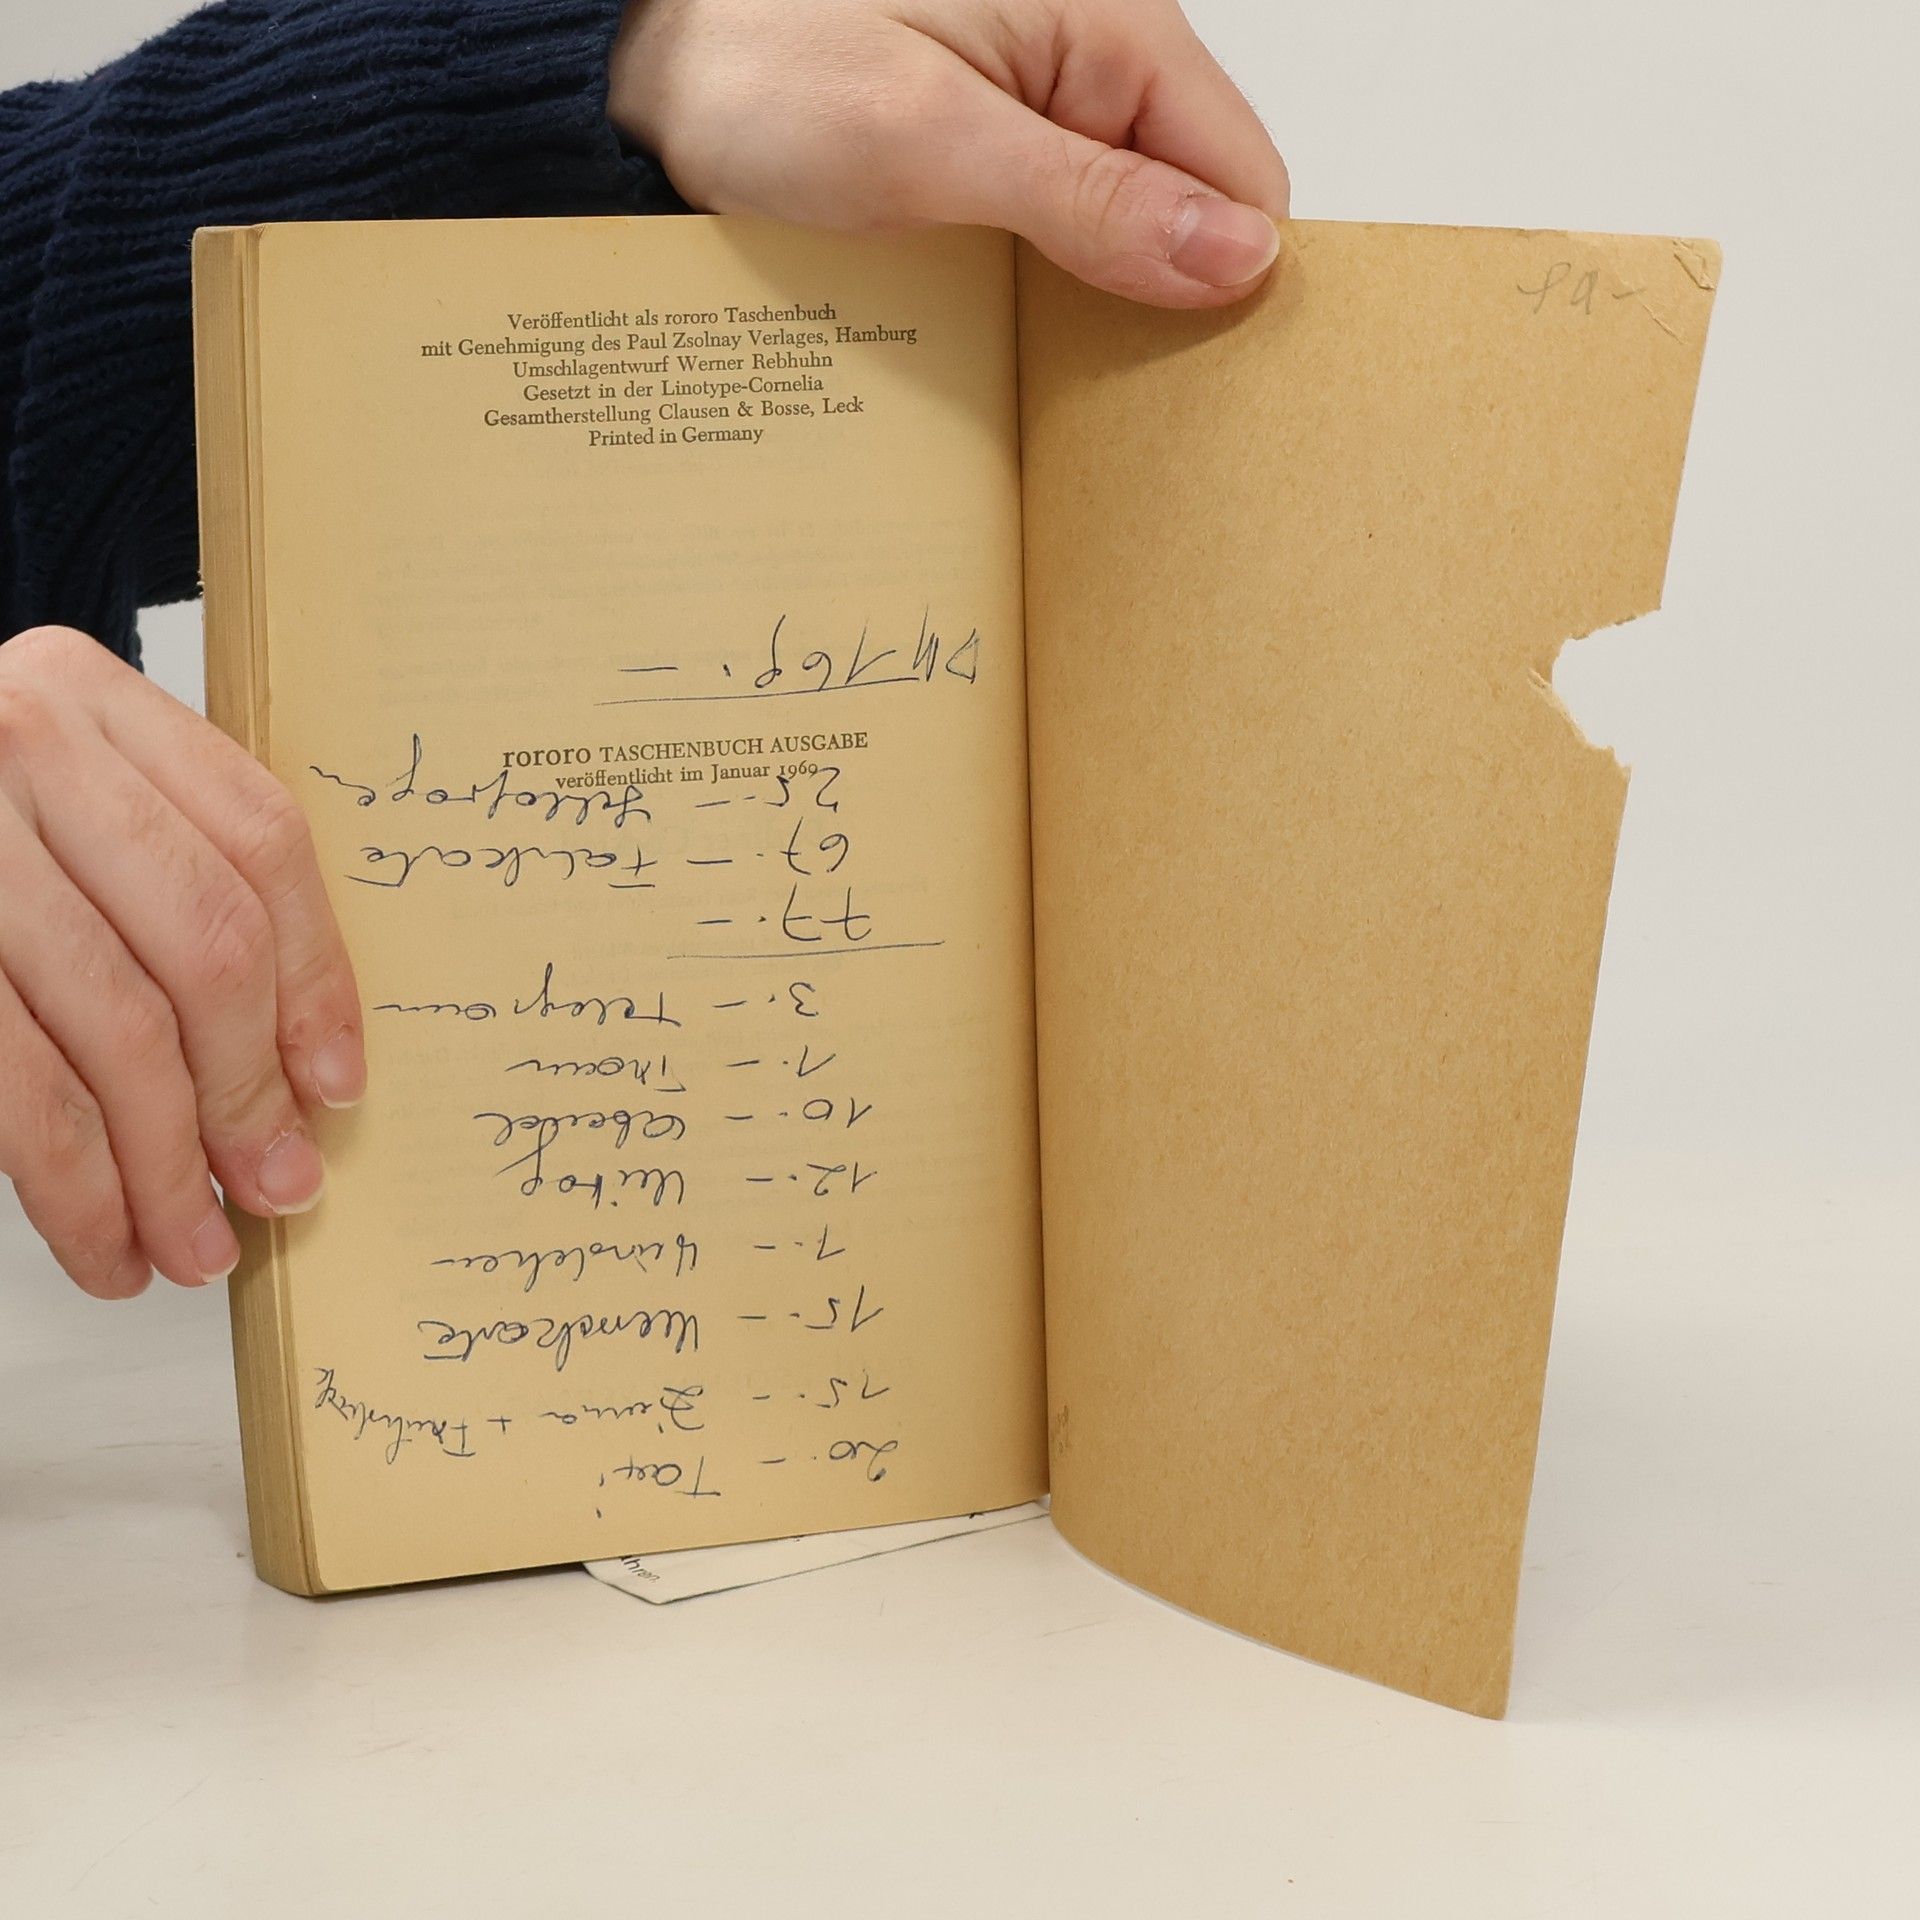 Veröffentlicht als rororo Taschenbuch
mit Genehmigung des Paul Zsolnay Verlages, Hamburg
Umschlagentwurf Werner Rebhuhn
Gesetzt in der Linotype-Cornelia
Gesamtherstellung Clausen & Bosse, Leck
Printed in Germany
rororo TASCHENBUCH AUSGABE
veröffentlicht im Januar 1969
20.- Taxi
15.- + Frühstück
15.-
1.- Würstchen
12.- Mittag
10.-
1.- Tram
3.- Telegram
77.-
67.- Fahrkarte
25.-
DM 169.-